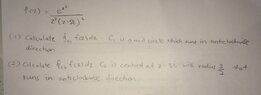 f(z) = e^{z²} / z³(z-5i)²
(1) Calculate ∮_{C₁} f(z)dz . C₁ is a unit circle which runs in anticlockwise
direction
(2) Calculate ∮_{C₂} f(z)dz C₂ is centred at z=5i with radius 3/2 that
runs in anticlockwise direction.